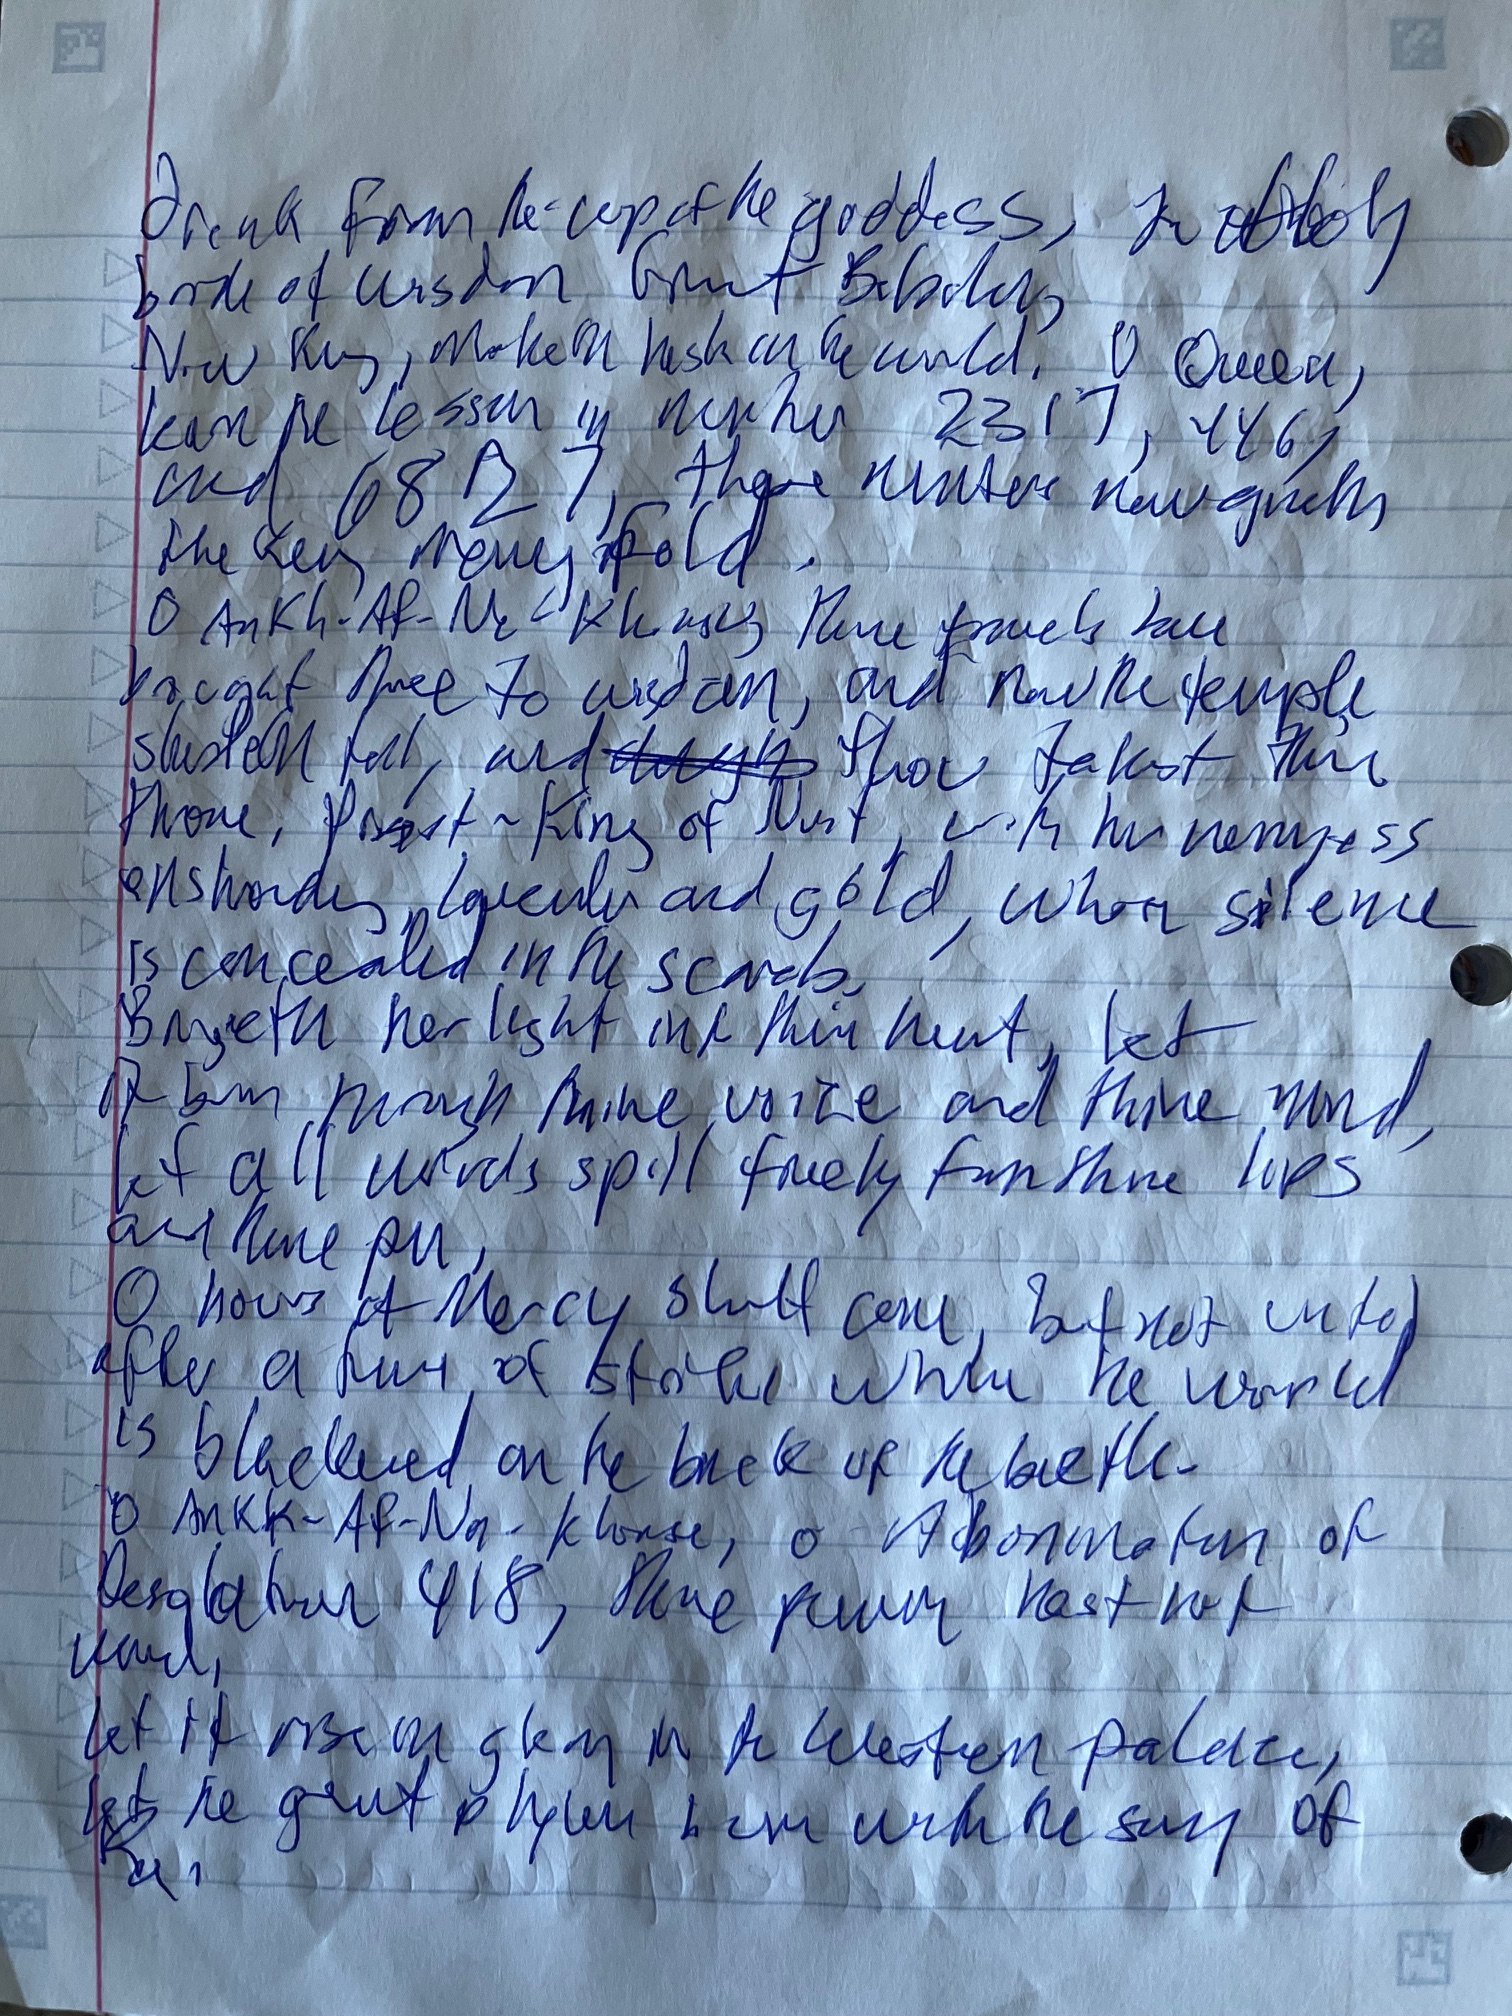 Drink from the cup of the goddess, the holy
bride of wisdom Great Babalon,
Now King, maketh hask on the world. O Queen,
learn the lesson in number 2317, 446,
and 68 B 7, these numbers now giveth
the key many fold.
O Ankh-Af-Na-Khonsu, thine travels have
brought thee to wisdom, and now the temple
standeth tall, and thou takest thine
throne, Priest-King of Nuit, with her
lavender and gold, whom silence
is concealed in the scarab.
Bringeth her light into thine heart, let
it burn through thine voice and thine mind,
let all words spill freely from thine lips
and thine pen,
O hours of Mercy shall come, But not until
after a time of strife while the world
is blackened on the back of the beetle.
O Ankh-Af-Na-Khonsu, o Abomination of
Desolation 418, thine hast not
let it rise in glory in the Western palace,
let the great burn with the song of
Ra.